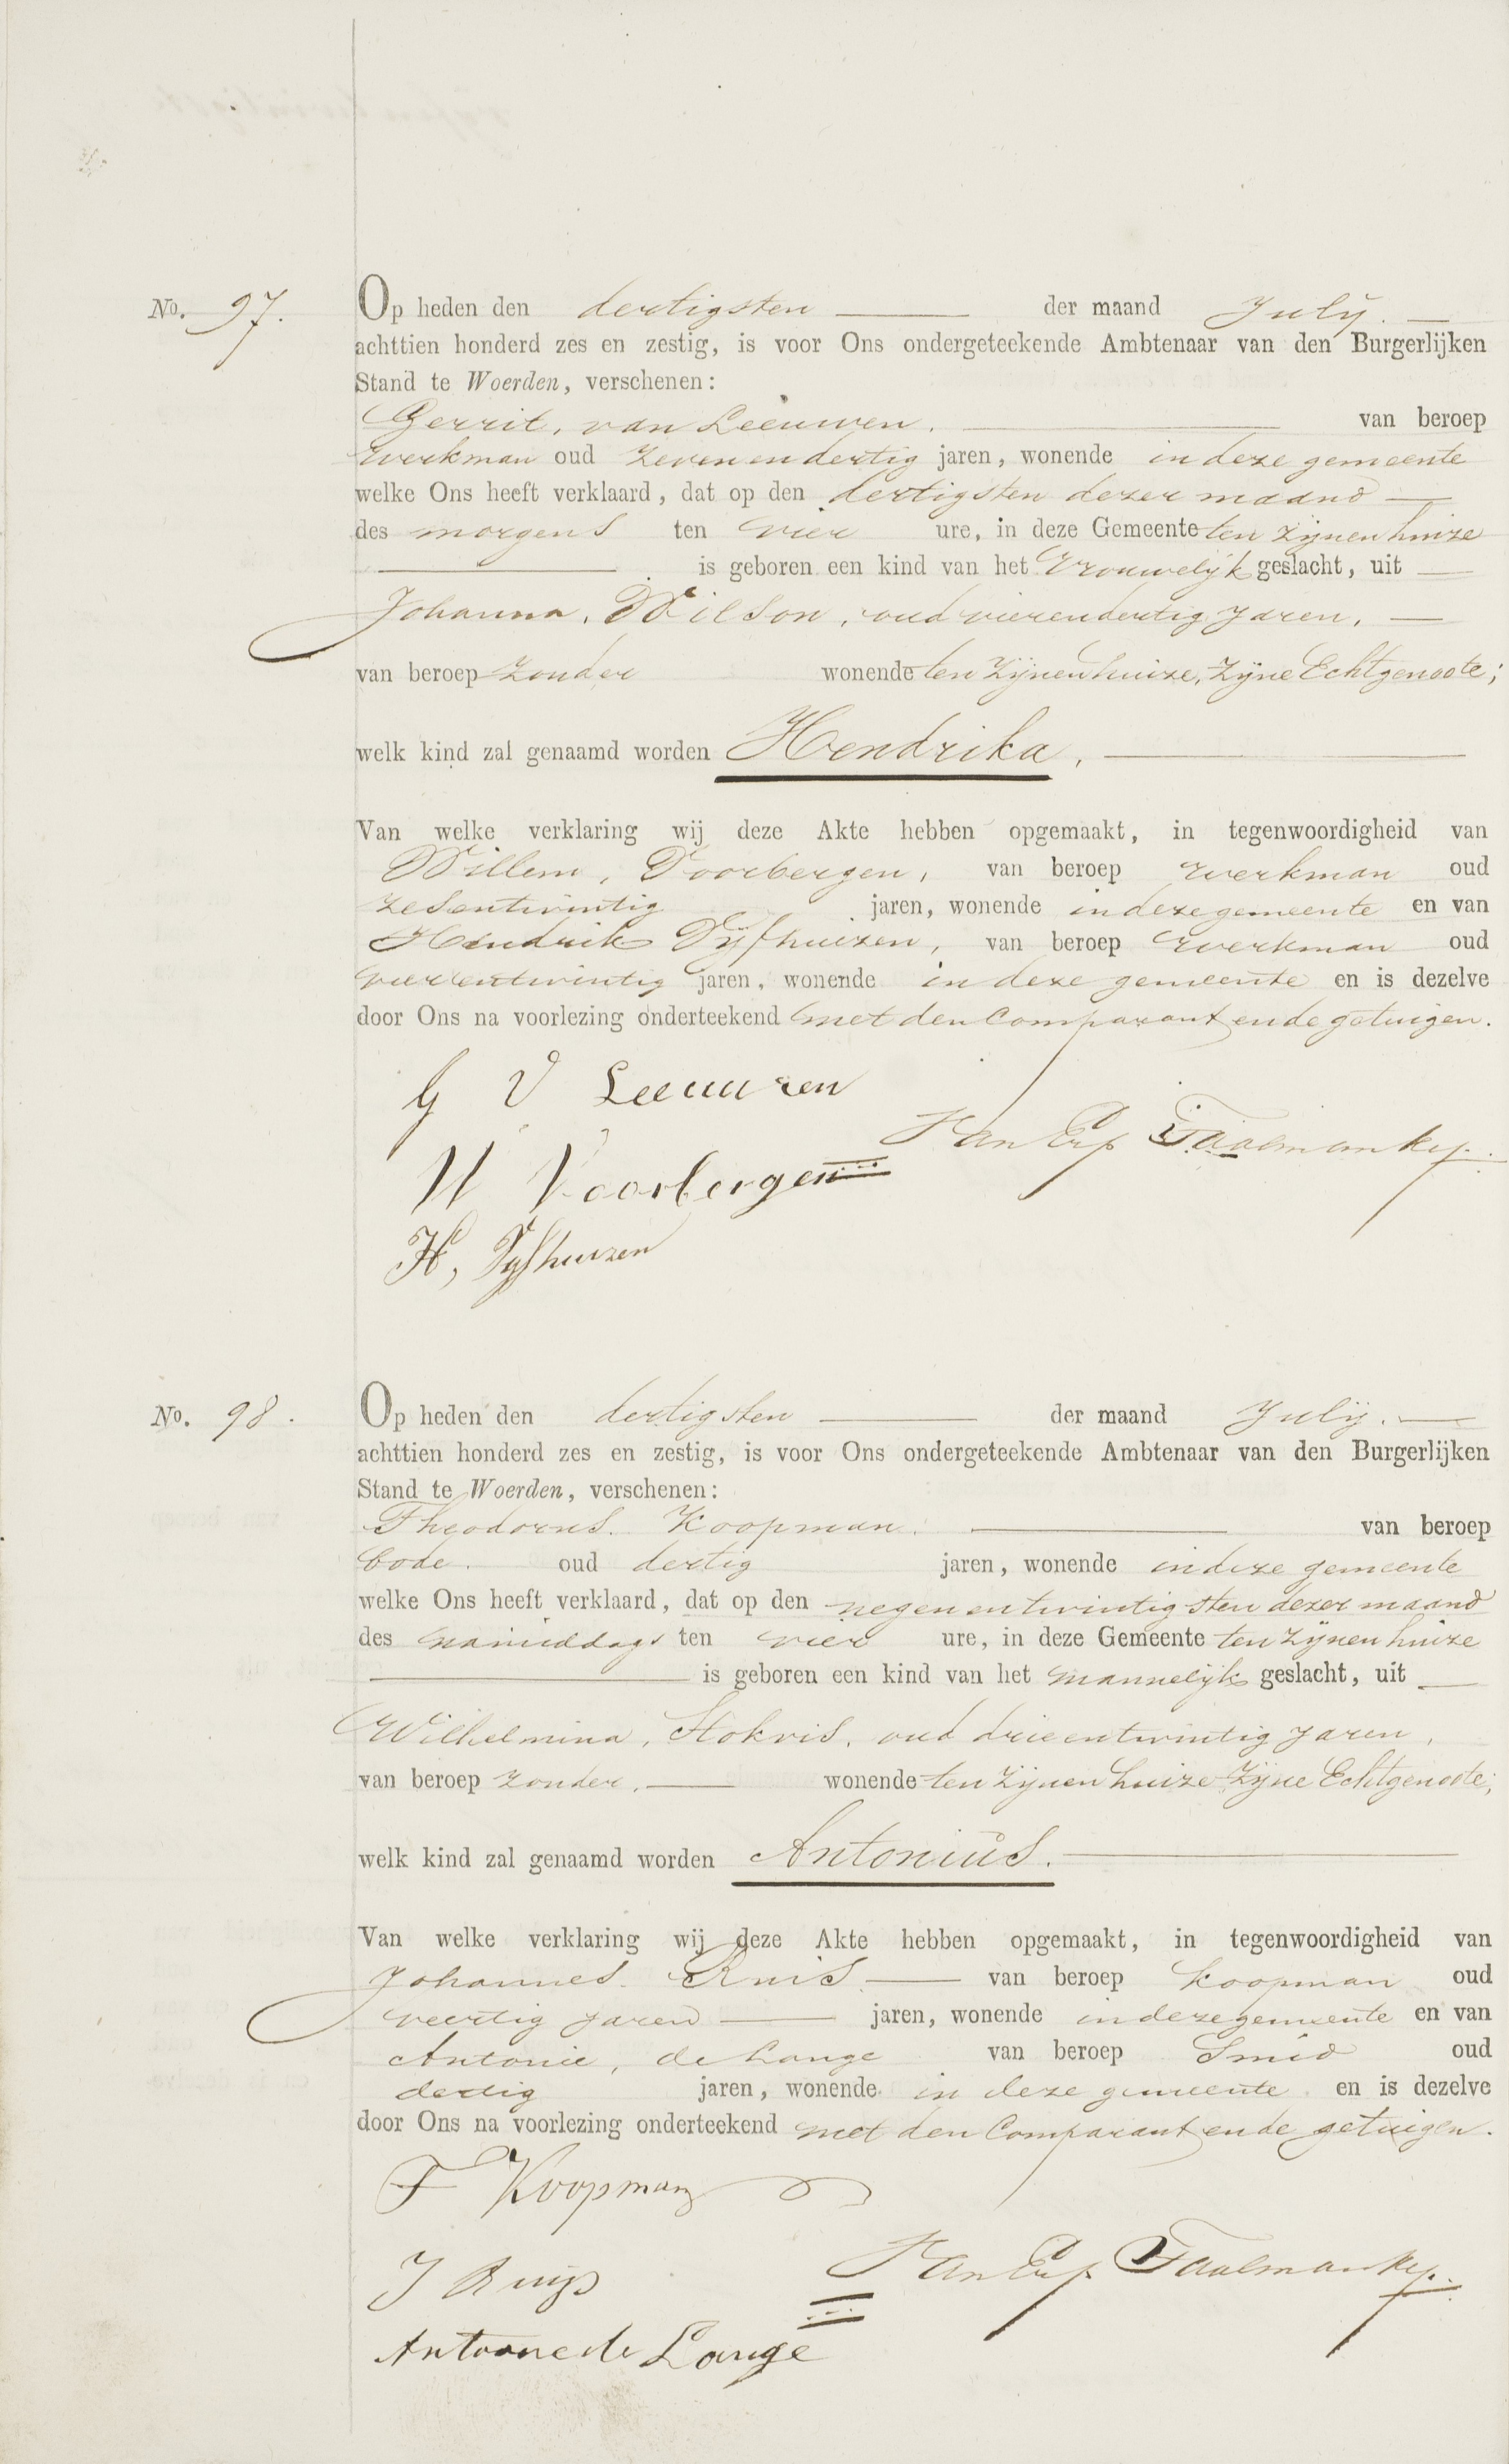 No. 97.
Op heden den dertigsten der maand July.
achttien honderd zes en zestig, is voor Ons ondergeteekende Ambtenaar van den Burgerlijken
Stand te Woerden, verschenen:
Gerrit, van Leeuwen. van beroep
werkman oud zevenendertig jaren, wonende in deze gemeente
welke Ons heeft verklaard, dat op den dertigsten dezer maand
des morgens ten vier ure, in deze Gemeente ten zijnen huize
is geboren een kind van het Vrouwelijk geslacht, uit
Johanna, Wilson, oud vierendertig jaren,
van beroep zonder wonende ten zijnen huize, zijne Echtgenoote;
welk kind zal genaamd worden Hendrika,
Van welke verklaring wij deze Akte hebben opgemaakt, in tegenwoordigheid van
Willem, Voorbergen, van beroep werkman oud
zesentwintig jaren, wonende in deze gemeente en van
Hendrik Vijfhuizen, van beroep werkman oud
vierentwintig jaren, wonende in deze gemeente en is dezelve
door Ons na voorlezing onderteekend met den Comparant en de getuigen.
G V Leeuwen
Van Erp Taalman Kip.
W Voorbergen
H, Vyfhuizen
No. 98.
Op heden den dertigsten der maand July.
achttien honderd zes en zestig, is voor Ons ondergeteekende Ambtenaar van den Burgerlijken
Stand te Woerden, verschenen:
Theodorus. Koopman. van beroep
bode. oud dertig jaren, wonende in deze gemeente
welke Ons heeft verklaard, dat op den negenentwintigsten dezer maand
des namiddags ten vier ure, in deze Gemeente ten zijnen huize
is geboren een kind van het mannelijk geslacht, uit
Wilhelmina, Stokvis, oud drieentwintig jaren,
van beroep zonder. wonende ten zijnen huize zijne Echtgenoote;
welk kind zal genaamd worden Antonius.
Van welke verklaring wij deze Akte hebben opgemaakt, in tegenwoordigheid van
Johannes Ruis van beroep koopman oud
veertig jaren jaren, wonende in deze gemeente en van
Antonie, de Lange van beroep Smid oud
dertig jaren, wonende in deze gemeente en is dezelve
door Ons na voorlezing onderteekend met den Comparant en de getuigen.
T Koopman
J Ruijs
Van Erp Taalman Kip.
Antoone de Lange